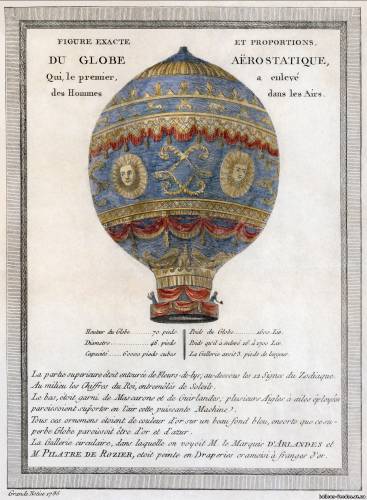 FIGURE EXACTE ET PROPORTIONS,
DU GLOBE AËROSTATIQUE,
Qui, le premier, a enlevé
des Hommes dans les Airs.
Hauteur du Globe ........ 70 pieds
Diametre ........ 46 pieds
Capacité ...... 60000 pieds cubes
Poids du Globe ........ 1600 Liv.
Poids qu'il a enlevé 16 à 1700 Liv.
La Gallerie avoit 3 pieds de largeur.
La partie superieure étoit entourée de Fleurs-de-lys, au-dessous les 12 Signes du Zodiaque.
Au milieu les Chiffres du Roi, entremêlés de Soleils.
Le bas, étoit garni de Mascarons et de Guirlandes; plusieurs Aigles à ailes éployées
paroissoient suporter en l'air cette puissante Machine.
Tous ces ornemens étoient de couleur d'or sur un beau fond bleu, ensorte que ce su-
perbe Globe paroissoit être d'or et d'azur.
La Gallerie circulaire, dans laquelle on voyoit M. le Marquis D'ARLANDES et
M. PILATRE DE ROZIER, étoit peinte en Draperies cramoisi à franges d'or.
Grande Notice 1786